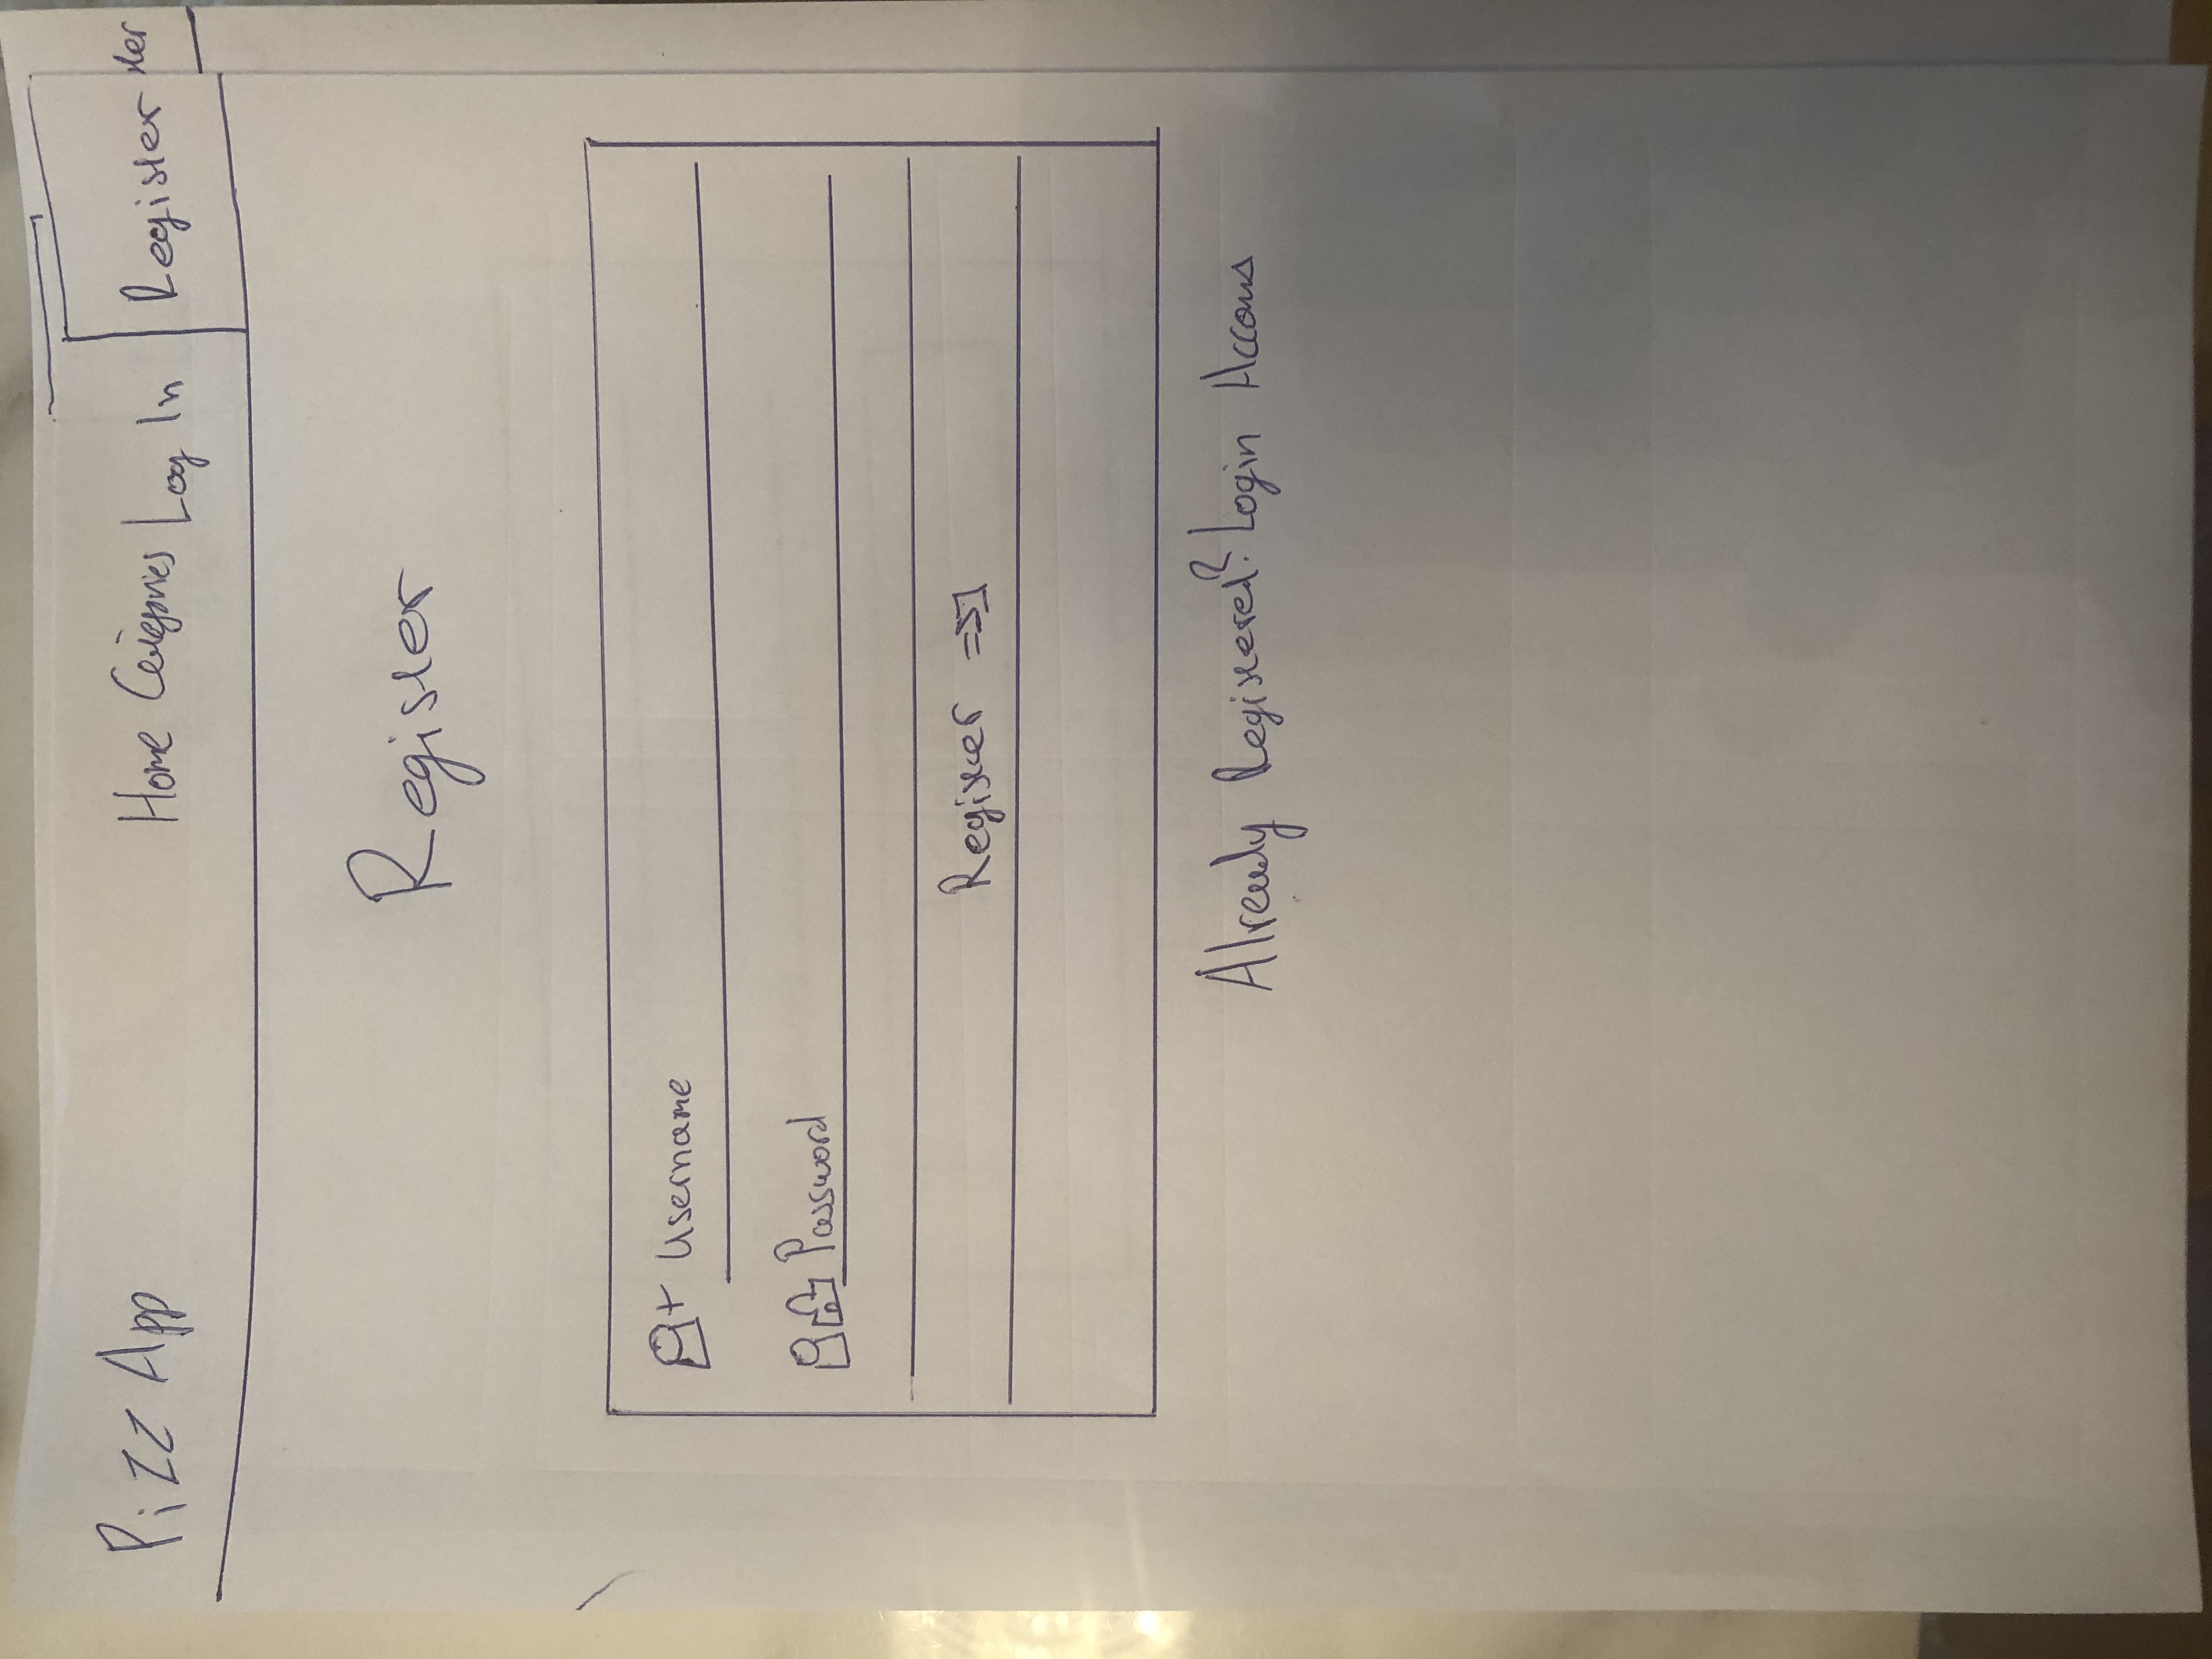 Pizz App Home Categories Log In Register
Register
Username
Password
Register
Already Registered? Login